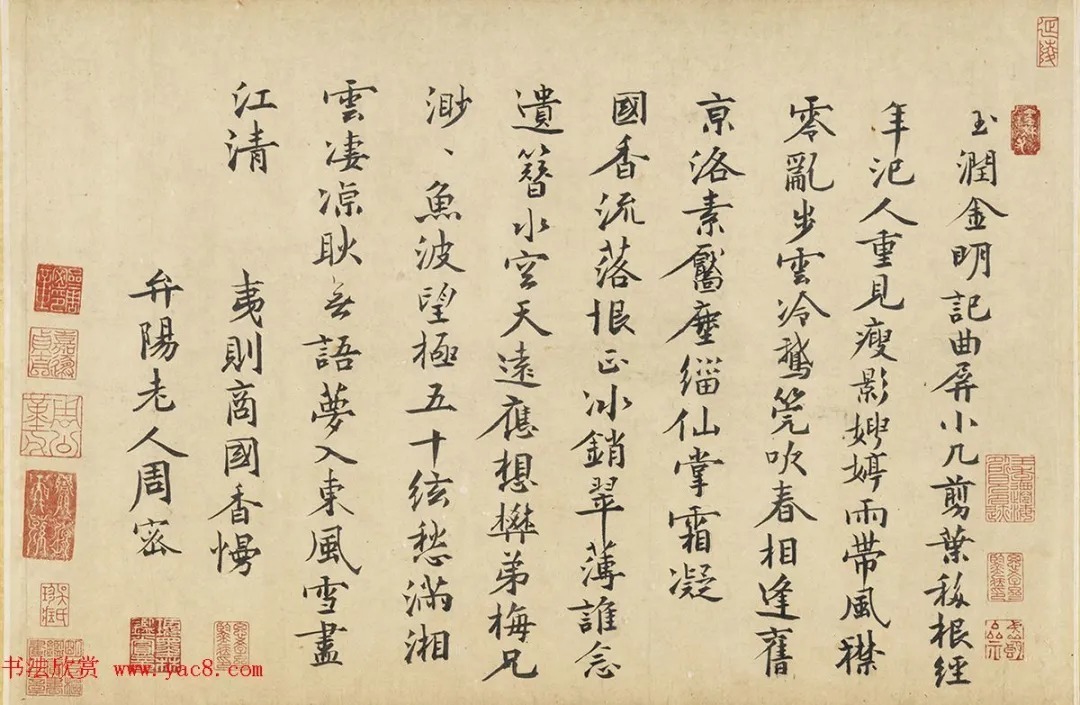 玉潤金明記曲屏小几剪葉移根經
年汜人重見瘦影娉婷雨帶風襟
零亂步雲冷鵞筦吹春相逢舊
京洛素靨塵緇仙掌霜凝
國香流落恨正冰銷翠薄誰念
遺簪水空天遠應想礬弟梅兄
渺、魚波望極五十弦愁滿湘
雲淒涼耿無語夢入東風雪盡
江清
夷則商國香慢
弁陽老人周密
延陵
书法欣赏 www.yac8.com